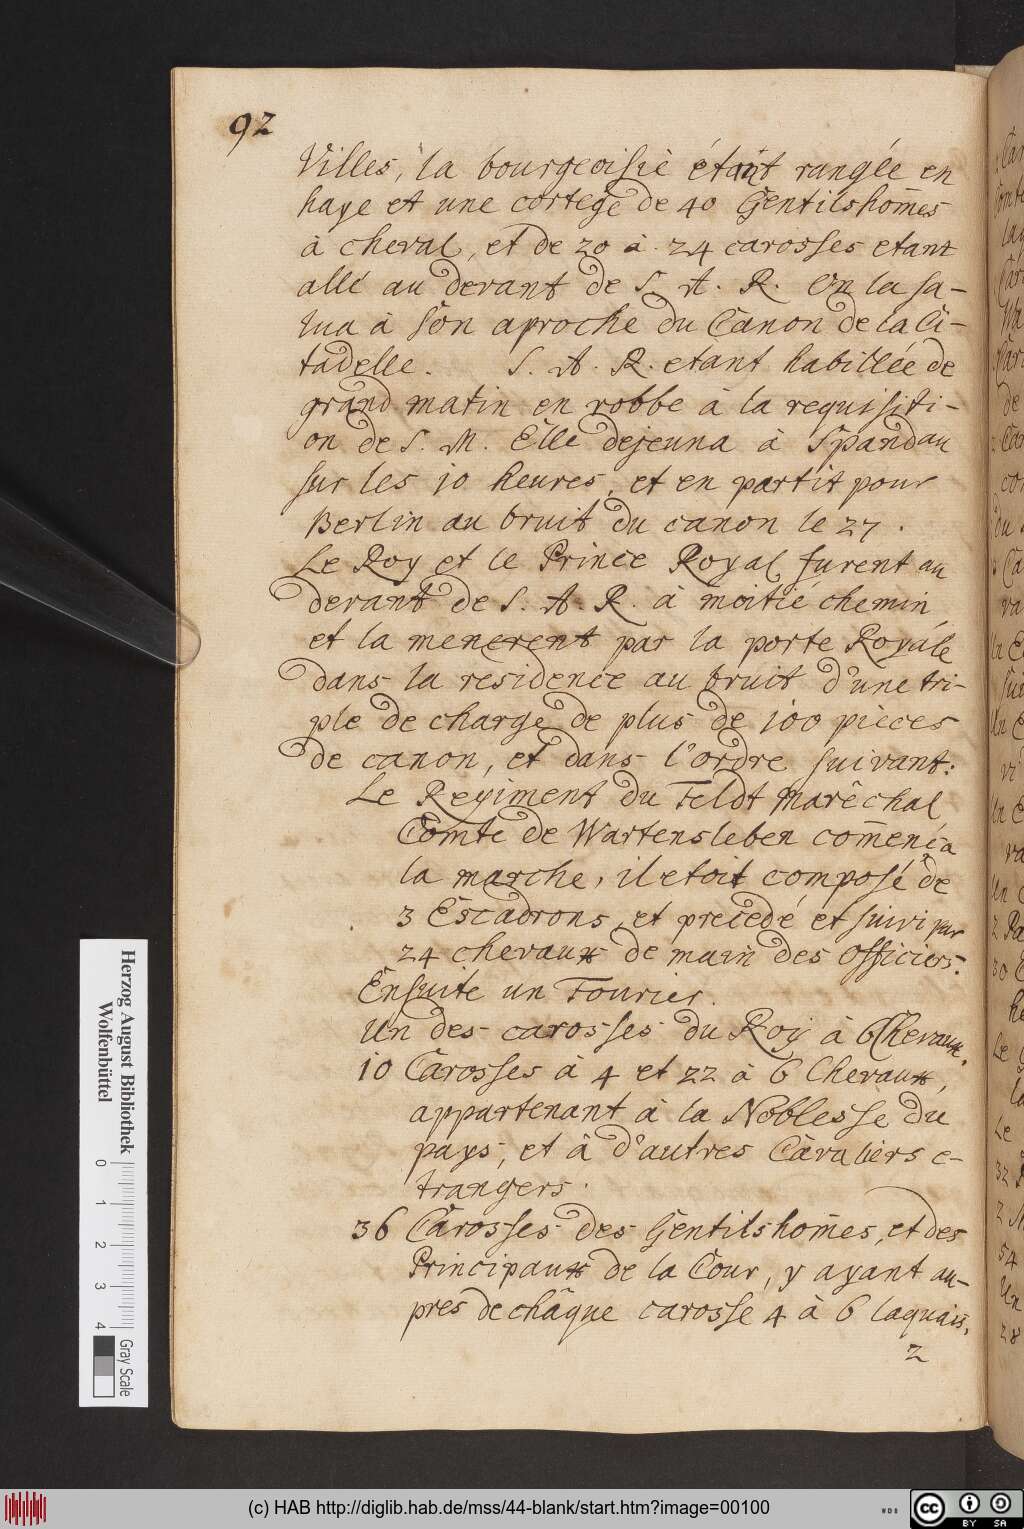 92
Villes, la bourgeoisie étant rangée en
haye et une cortege de 40 Gentilshom̄es
à cheval, et de 20 à 24 carosses etant
allé au devant de S. A. R. On la sa-
lua à son aproche du Canon de la Ci-
tadelle. S. A. R. etant habillée de
grand matin en robbe à la requisiti-
on de S. M. Elle dejeuna à Spandau
sur les 10 heures, et en partit pour
Berlin au bruit du canon le 27.
Le Roy et le Prince Royal furent au
devant de S. A. R. à moitié chemin
et la menerent par la porte Royale
dans la residence au bruit d'une tri-
ple de charge de plus de 100 pièces
de canon, et dans l'ordre suivant:
Le Regiment du Feldt Marêchal
Comte de Wartensleben com̄ença
la marche, il etoit composé de
3 Escadrons, et precedé et suivi par
24 chevaux de main des officiers.
Ensuite un Fourier.
Un des carosses du Roy à 6 Chevaux.
10 Carosses à 4 et 22 à 6 Chevaux,
appartenant à la Noblesse du
pays, et à d'autres Cavaliers e-
trangers.
36 Carosses des Gentilshom̄es, et des
Principaux de la Cour, y ayant au-
pres de châque carosse 4 à 6 laquais.
2
Herzog August Bibliothek
Wolfenbüttel
0 1 2 3 4
Gray Scale
(c) HAB http://diglib.hab.de/mss/44-blank/start.htm?image=00100
WDB
cc BY SA